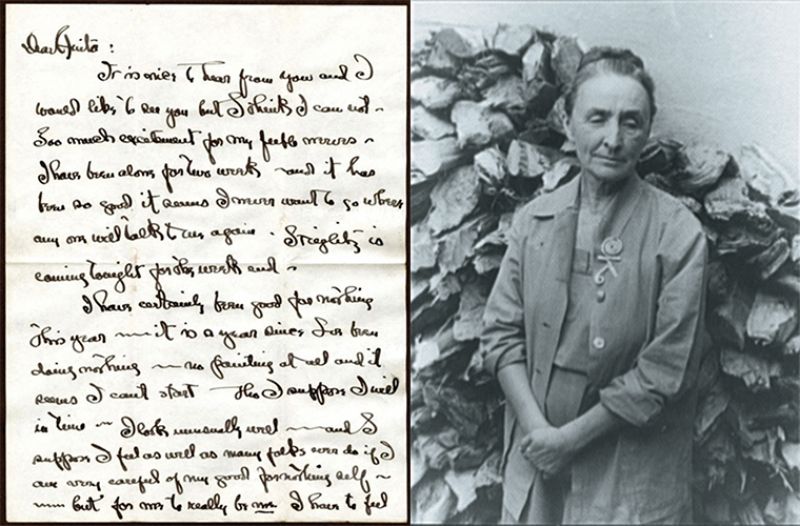 Dear Anita:
It is nice to hear from you and I
would like to see you but I think I can not –
Too much excitement for my feeble nerves –
I have been alone for two weeks – and it has
been so good it seems I never want to go where
any one will talk to me again. Stieglitz is
coming tonight for the week end –
I have certainly been good for nothing
this year — it is a year since I've been
doing nothing — no painting at all and it
seems I can't start – tho I suppose I will
in time – I look unusually well — and I
suppose I feel as well as many folks ever do if I
am very careful of my good for nothing self –
— but for me to really be me I have to feel